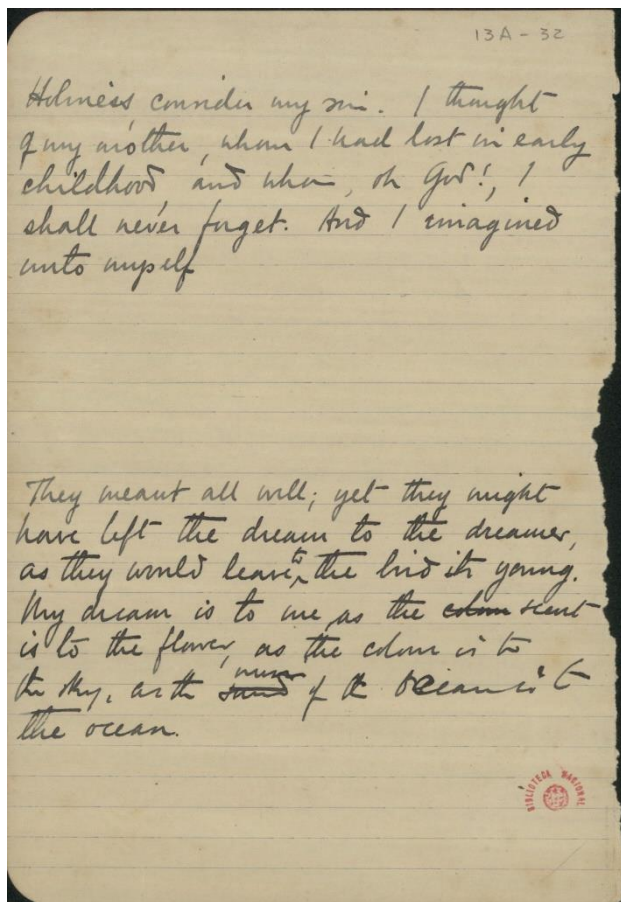 13A - 32
Holiness, consider my sin. I thought
of my mother, whom I had lost in early
childhood, and whom, oh God!, I
shall never forget. And I imagined
unto myself
They meant all well; yet they might
have left the dream to the dreamer,
as they would leave to the bird its young.
My dream is to me as the colour scent
is to the flower, as the colour is to
the sky, as the sound of the Ocean is to
the ocean.
BIBLIOTECA NACIONAL